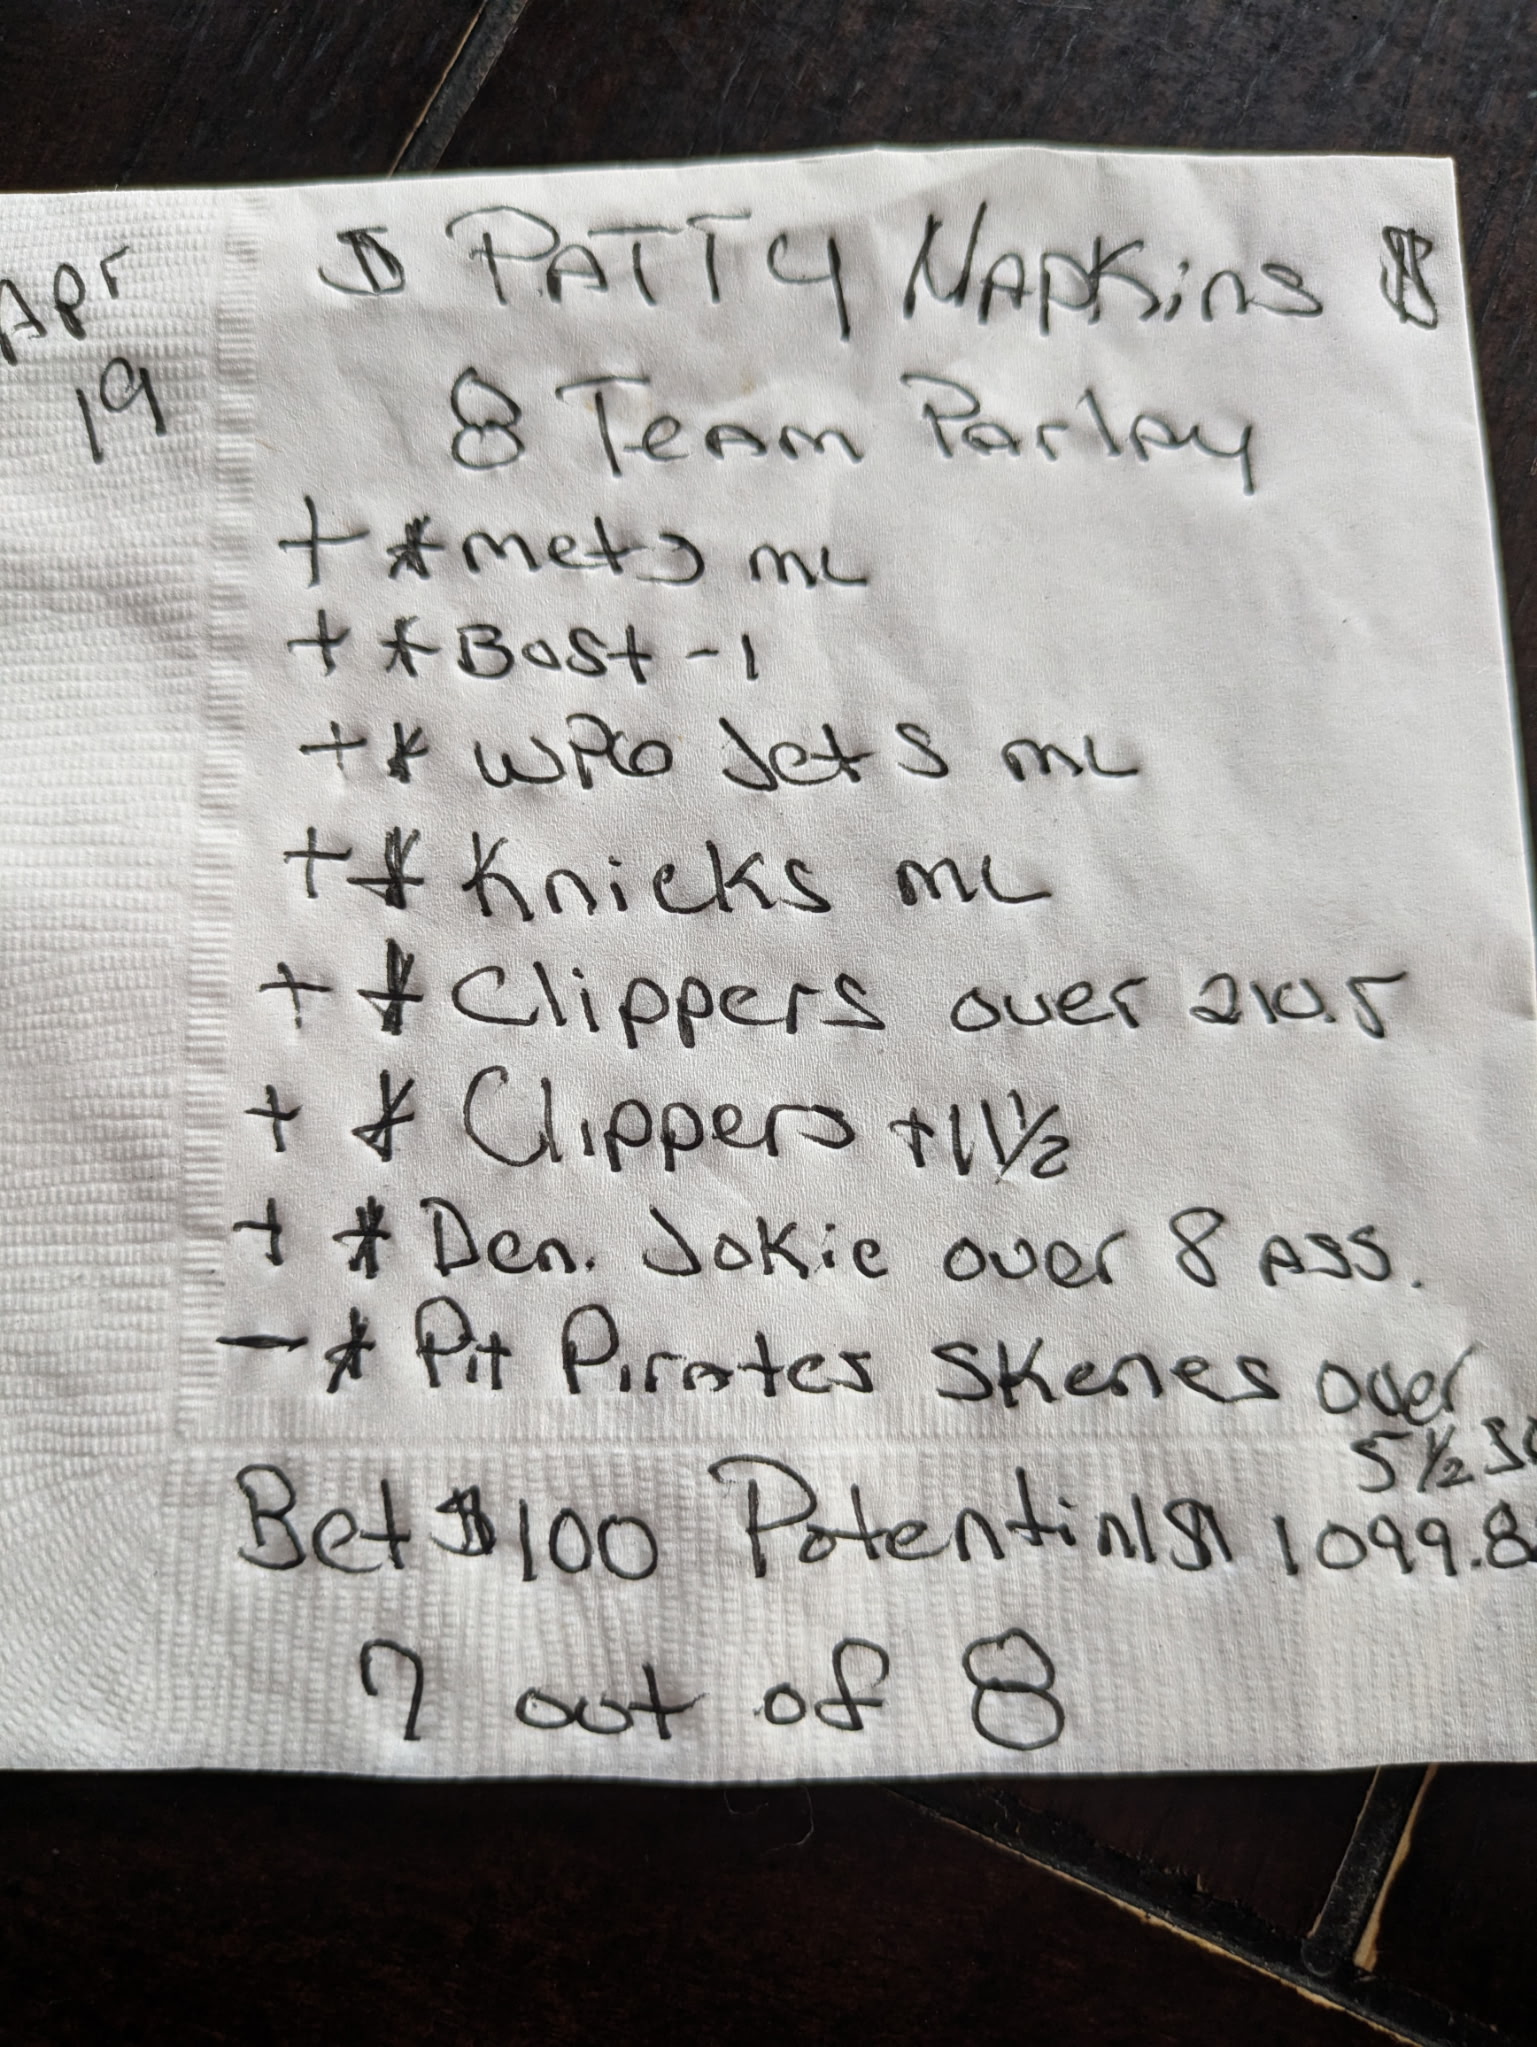 Apr
19
$ PATTY NAPKins $
8 Team Parlay
+ * mets mL
+ * Bost -1
+ * WPG Jets mL
+ * Knicks mL
+ * Clippers over 210.5
+ * Clippers +11 1/2
+ * Den. Jokic over 8 Ass.
- * Pit Pirates Skenes over
5 1/2
Bet $100 Potential $ 1099.8
7 out of 8